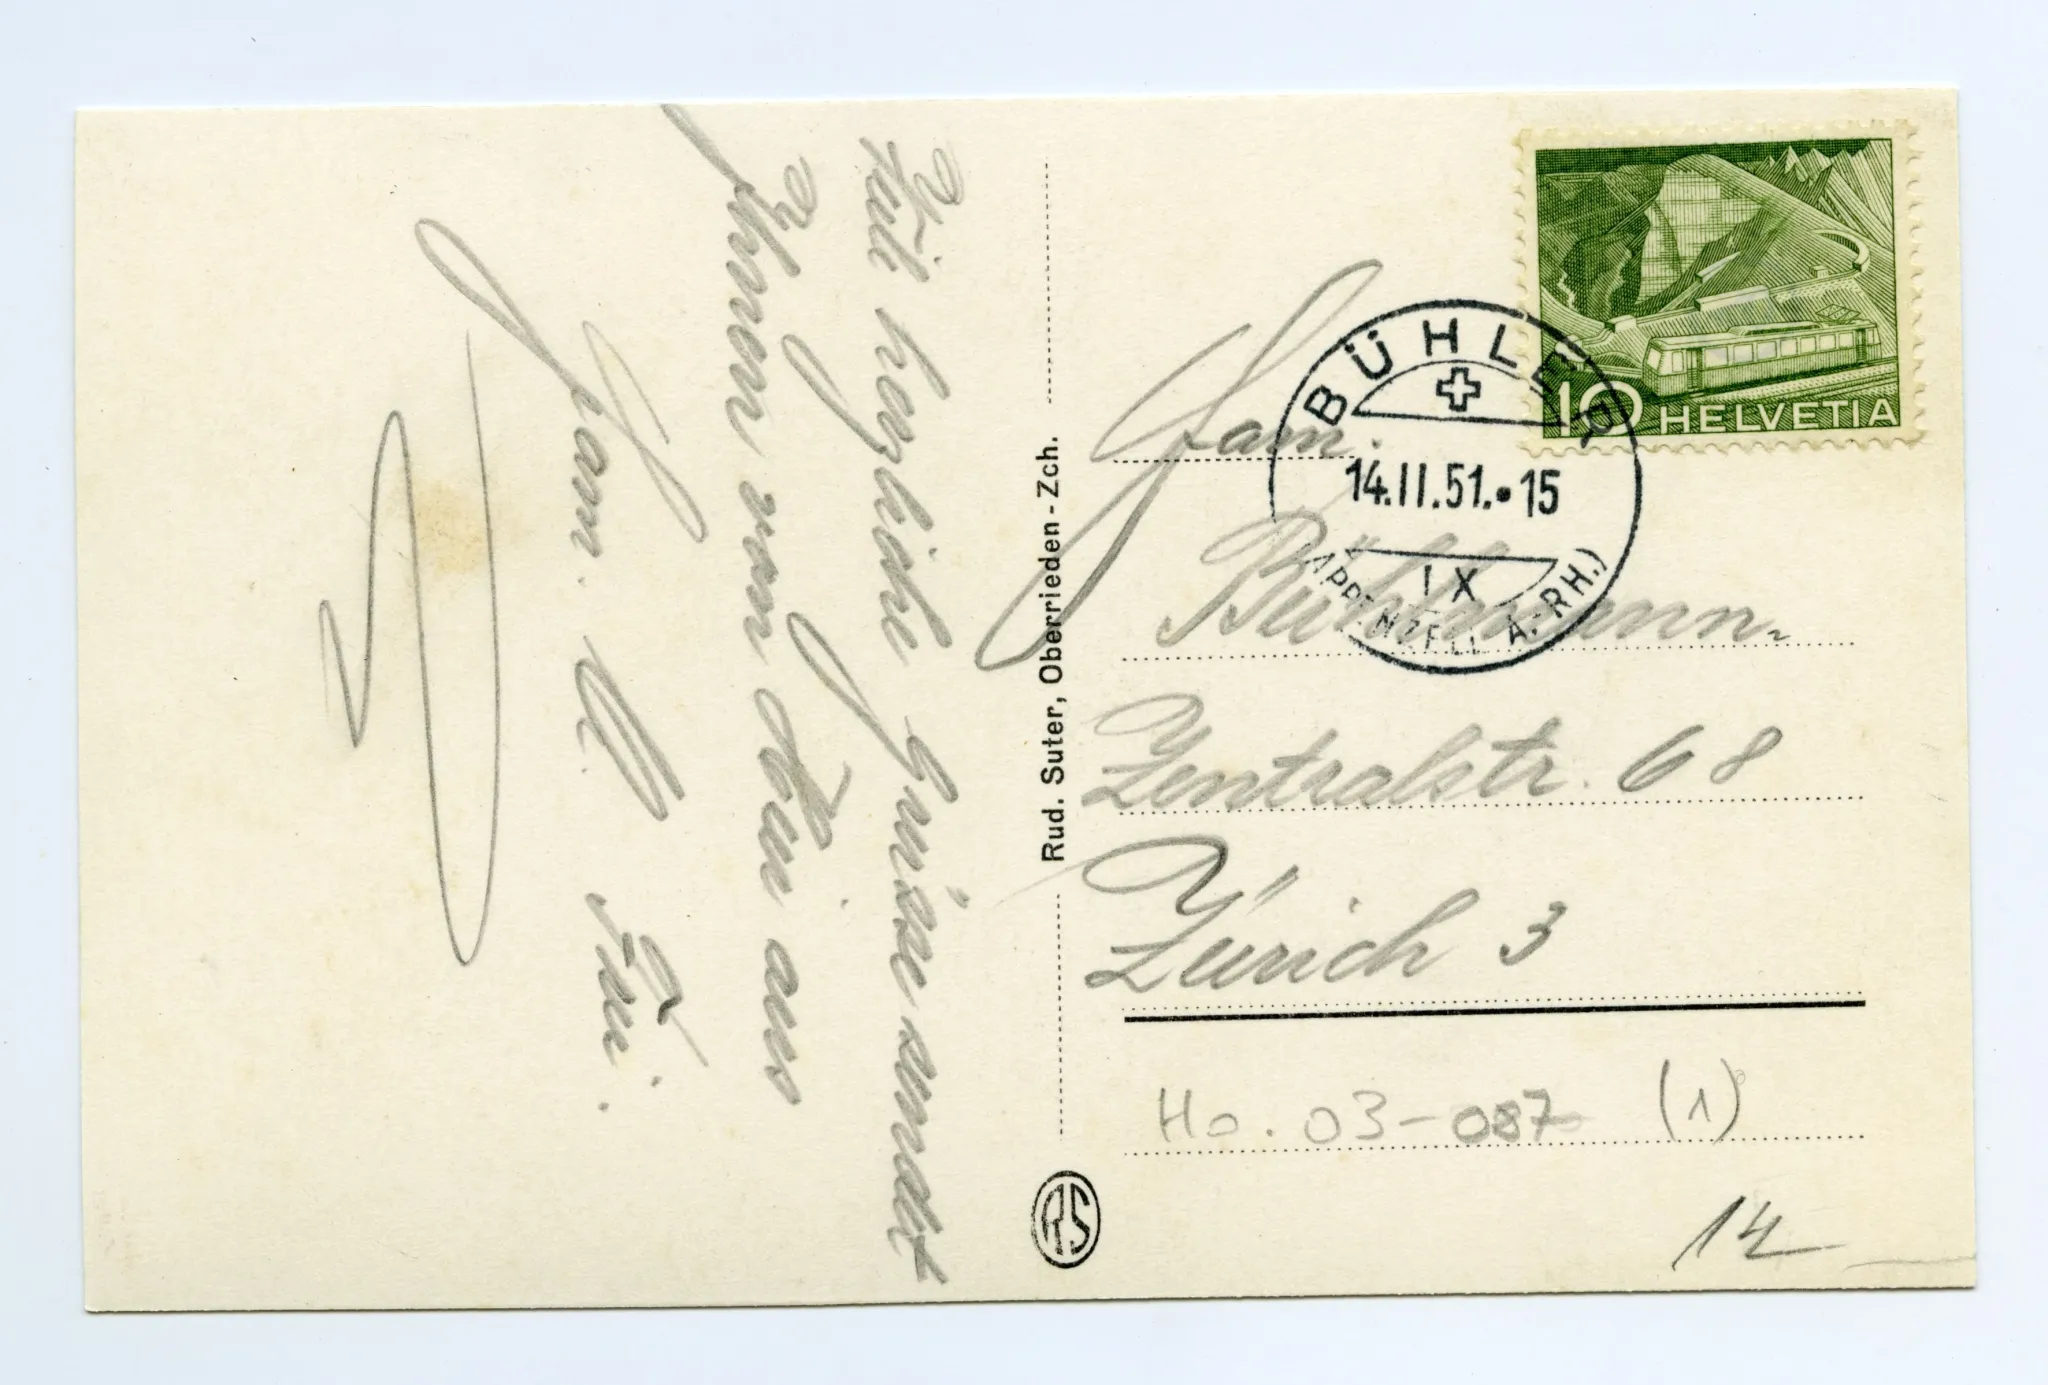 herzliche Grüsse sendet
Ihnen von 
aus
Fam.
Rud. Suter, Oberrieden - Zch.
RS
10 HELVETIA
BÜHLER
14.II.51.•15
IX
(APPENZELL A.-RH.)
Fam.
Bühlmann.
Zentralstr. 68
Zürich 3
Ho. 03-087 (1)
14